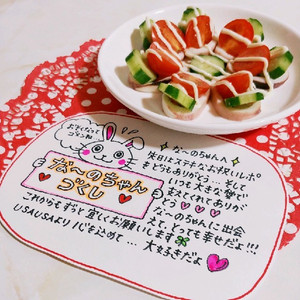 な〜のちゃん
ゴメし
な〜のちゃんへ
先日はステキなお祝いレポ
をどうもありがとう…そして
いつも大きな愛で
支えてくれてありが
とう
な〜のちゃんに出会
えて、とっても幸せだよ!!!
これからもずっと宜しくお願いします
USAUSAより心を込めて…大好きだよ